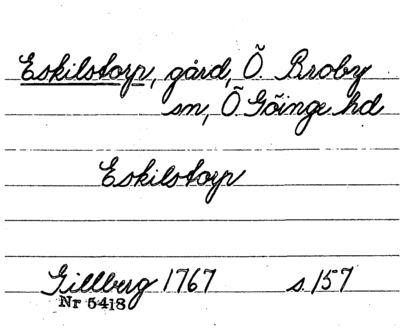 Eskilstorp, gård, Ö. Broby
sn, Ö. Göinge hd
Eskilstorp
Gillberg 1767 s. 157
Nr 5418